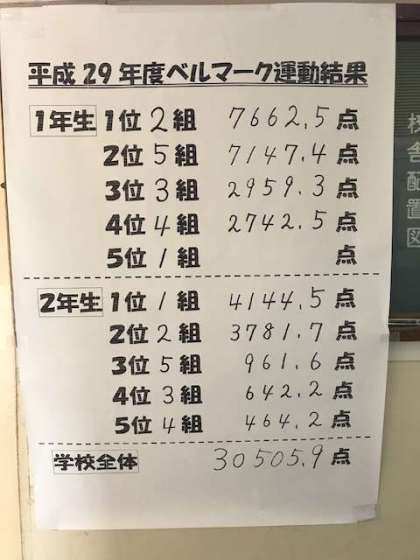 平成29年度ベルマーク運動結果
1年生 1位 2組 7662.5点
2位 5組 7147.4点
3位 3組 2959.3点
4位 4組 2742.5点
5位 1組 点
2年生 1位 1組 4144.5点
2位 2組 3781.7点
3位 5組 961.6点
4位 3組 642.2点
5位 4組 464.2点
学校全体 30505.9点
校舎配置図